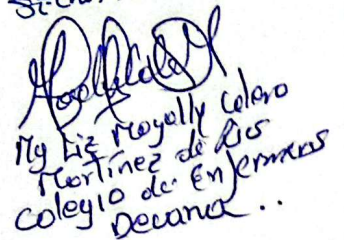 Mg Liz Magally Calero
Martínez de Ríos
Colegio de Enfermeros
Decana ..